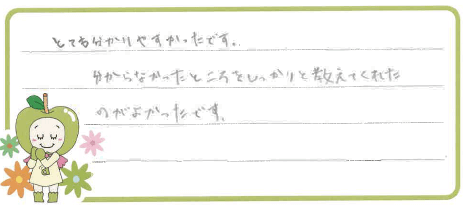 とても分かりやすかったです。
分からなかったところをしっかりと教えてくれた
のがよかったです。